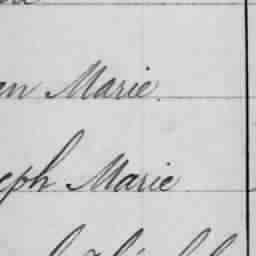 an Marie.
eph Marie